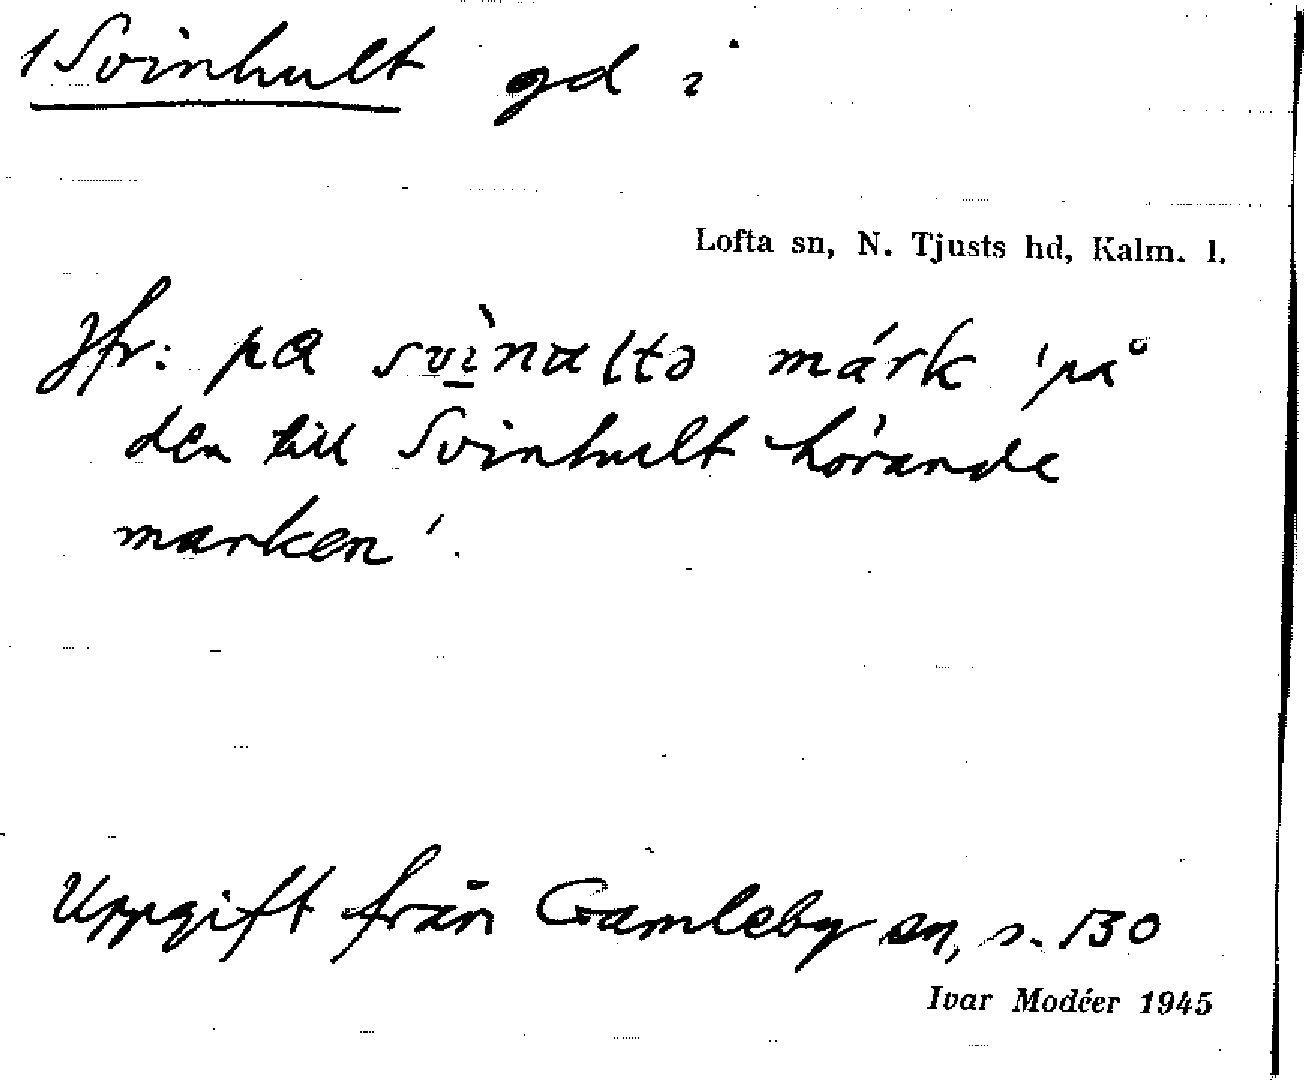 1 Svinhult gd i
Lofta sn, N. Tjusts hd, Kalm. l.
Jfr: pa svìnaltə márk 'på
den till Svinhult hörande
marken'.
Uppgift från Gamleby sn, s. 130
Ivar Modéer 1945